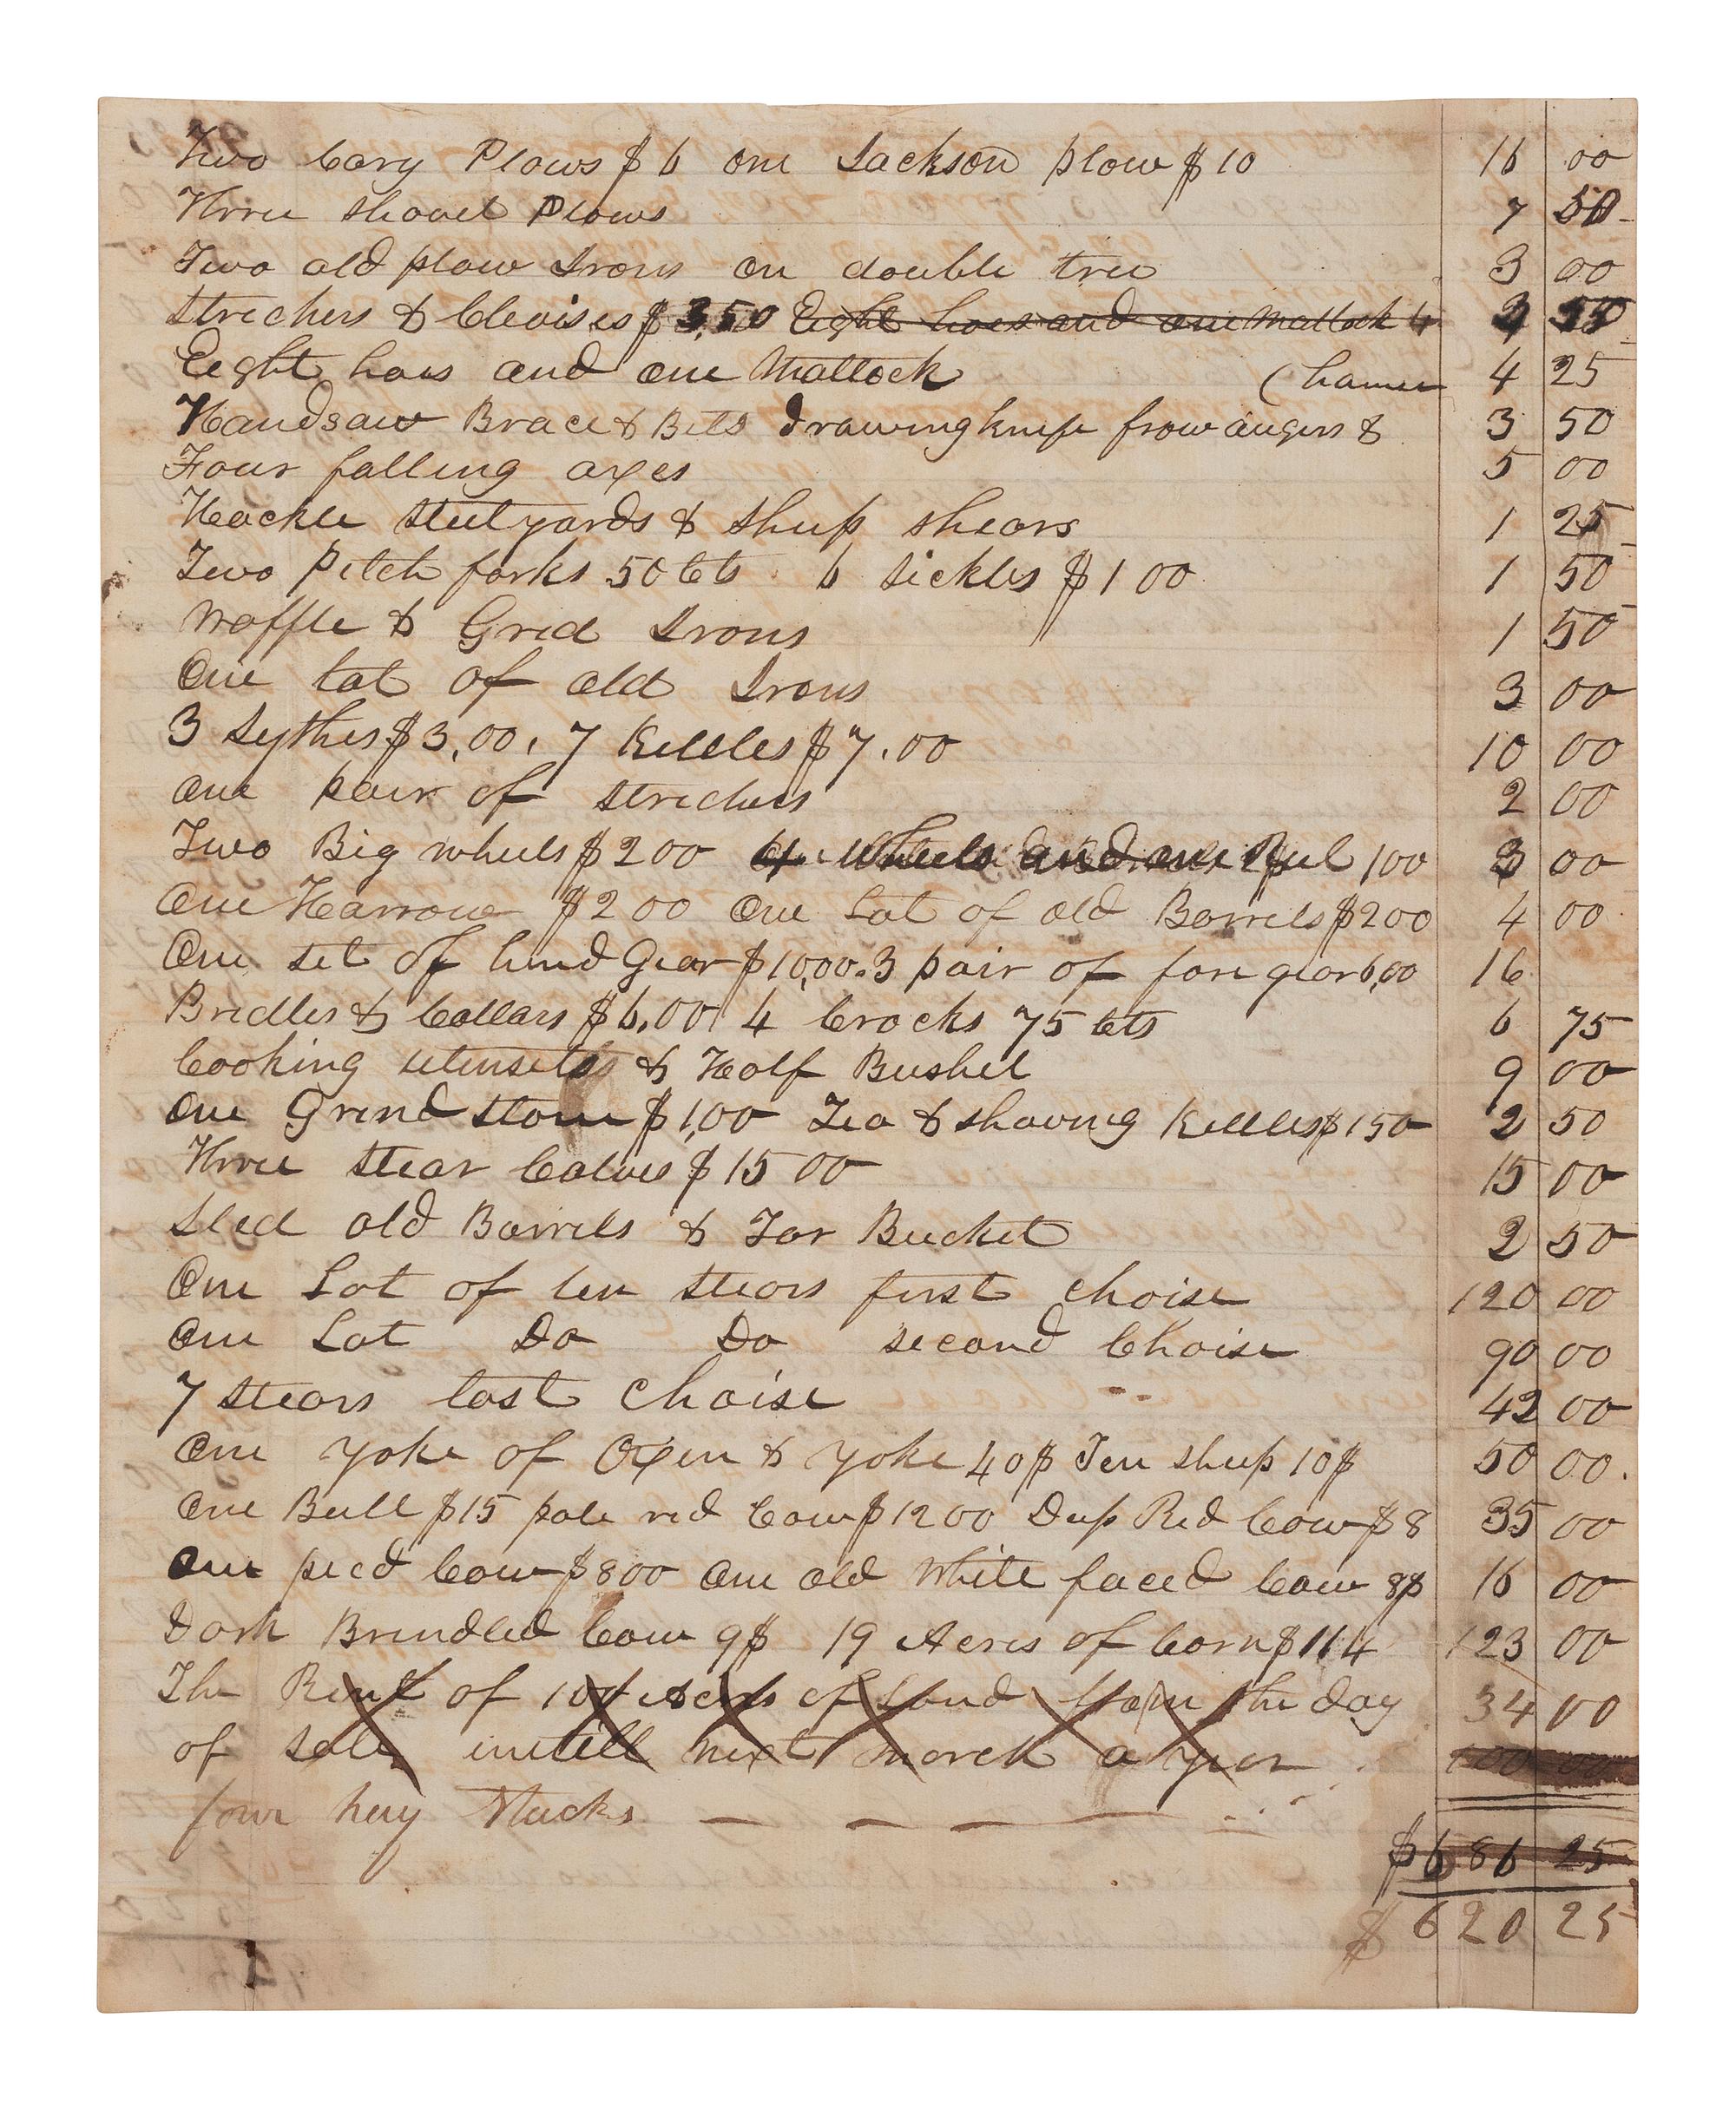 Two Cary Plows $6 one Jackson plow $10 16 00
Three shovel Plows 7 50
Two old plow Irons on double tree 3 00
Strechers & Clevises $3,50 Eight hoes and one Mattock 4 50
Eight hoes and one Mattock 4 25
(hamer
Handsaw Brace & Bits drawingknife frow augers & 3 50
Four falling axes 5 00
Hackle Steelyards & Sheep shears 1 25
Two Pitch forks 50 cts 6 sickles $1 00 1 50
Waffle & Grid Irons 1 50
One lot of old Irons 3 00
3 Sythes $3,00, 7 Kettles $7.00 10 00
one pair of strechers 2 00
Two Big wheels $2 00 Wheels and one Reel 100 3 00
One Harrow $2 00 One Lot of old Barrels $200 4 00
One set of hind Gear $10,00. 3 pair of fore gear 6,00 16
Bridles & Collars $6,00 4 Crocks 75 cts 6 75
Cooking utensels & Half Bushel 9 00
One Grind stone $1,00 Tea & shaving Kettles $150 2 50
Three stear Calves $15 00 15 00
Sled old Barrels & Tar Bucket 2 50
One Lot of ten stears first choise 120 00
One Lot Do Do second Choise 90 00
7 stears last choise 42 00
One yoke of Oxen & yoke 40$ Ten sheep 10$ 50 00.
One Bull $15 pale red Cow $12 00 Deep Red Cow $8 35 00
One pied Cow $8 00 One old White faced Cow 8$ 16 00
Dark Brindled Cow 9$ 19 Acres of Corn $114 123 00
The Rent of 100 Acers of Land from the day 34 00
of Sale untill next march a year 100 00
four hay Stacks
$686 25
$620 25